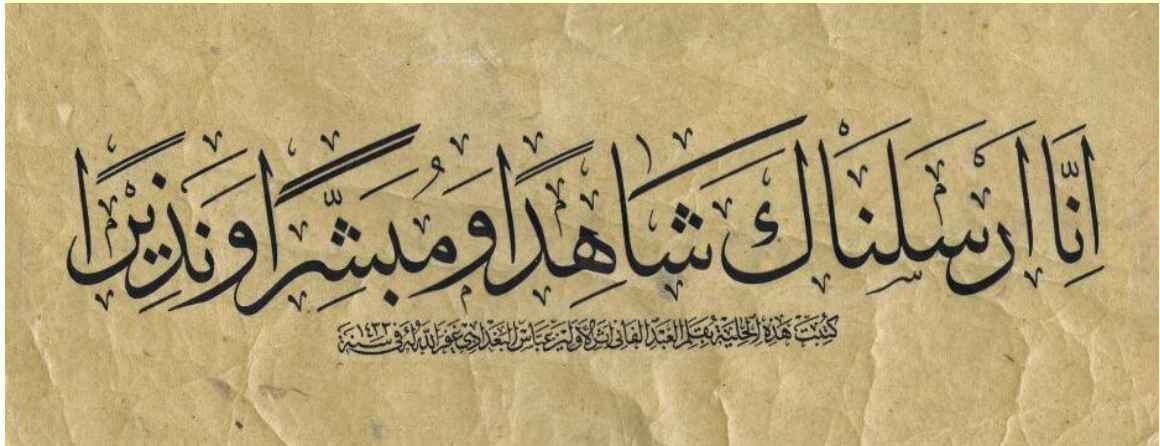 اِنَّا اَرْسَلْنَاكَ شَاهِدًا وَمُبَشِّرًا وَنَذِيْرًا
كُتِبَتْ هَذِهِ الْحِلْيَة بِقَلَمِ الْعَبْدِ الْفَانِي عَبَّاس الْبَغْدَادِي غَفَرَ اللّٰهُ لَهُ فِي سَنَة ١٤٣٣